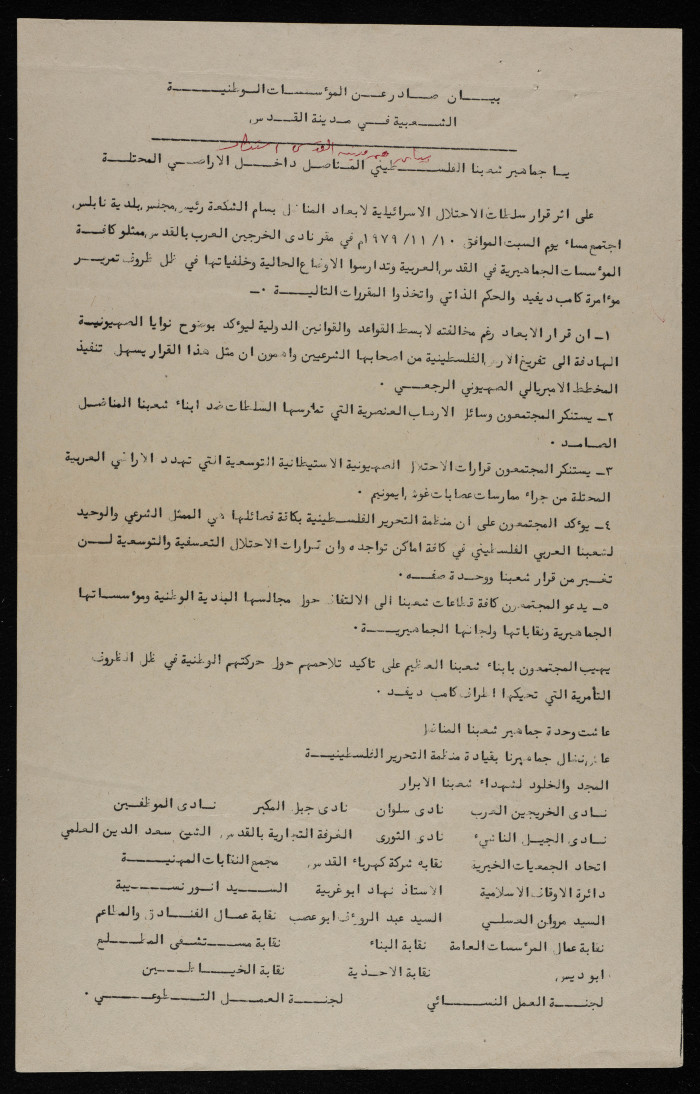 بيــان صــادر عــن المؤسســات الوطنيــــة
الشــعبية فــي مدينة القــدس
بيان من مدينة القدس
يــا جماهير شعبنا الفلســطيني المناضل داخــل الاراضــي المحتلــة
على اثر قرار سلطات الاحتلال الاسرائيلية لابعاد المناضل بسام الشكعة رئيس مجلس بلدية نابلس
اجتمع مساء يوم السبت الموافق ١٠ /١١ /١٩٧٩م في مقر نادى الخرجين العرب بالقدس ممثلو كافــة
المؤسسات الجماهيرية في القدس العربية وتدارسوا الاوضاع الحالية وخلفياتها في ظل ظروف تمريــر
مؤامرة كامب ديفيد والحكم الذاتي واتخذوا المقررات التاليــــة ٠ــ
١ــ ان قرار الابعاد رغم مخالفته لابسط القواعد والقوانين الدولية ليؤكد بوضوح نوايا الصهيونيــة
الهادفة الى تفريغ الارض الفلسطينية من اصحابها الشرعيين واهمون ان مثل هذا القرار يسهل تنفيذ
المخطط الامبريالي الصهيوني الرجعــي ٠
٢ــ يستنكر المجتمعون وسائل الارهاب العنصرية التي تمارسها السلطات ضد ابناء شعبنا المناضــل
الصامــد ٠
٣ــ يستنكر المجتمعون قرارات الاحتلال الصهيونية الاستيطانية التوسعية التي تهدد الاراضي العربية
المحتلة من جراء ممارسات عصابات غوش ايمونيم ٠
٤ــ يؤكد المجتمعون على ان منظمة التحرير الفلسـطينية بكافة فصائلها هي الممثل الشرعي والوحيد
لشعبنا العربي الفلسطيني في كافة اماكن تواجده وان قرارات الاحتلال التعسفية والتوسعية لــن
تغــير من قرار شعبنا ووحــدة صفــه ٠
٥ــ يدعو المجتمعون كافة قطاعات شعبنا الى الالتفاف حول مجالسها البلدية الوطنية ومؤسساتها
الجماهيرية ونقاباتها ولجانها الجماهيريــــة ٠
يهيب المجتمعون بابناء شعبنا العظيم على تاكيد تلاحمهم حول حركتهم الوطنية في ظل الظروف
التأمرية التي تحيكها اطراف كامب ديفــد ٠
عاشت وحدة جماهير شعبنا المناضل
عاش نضال جماهيرنا بقيادة منظمة التحرير الفلسطينيــــة
المجد والخلود لشهداء شعبنا الابرار
نــادى الخريجين العرب نادى سلوان نادى جبل المكبر نــادى الموظفــين
نــادى الجيــل الناشىء نادي الثورى الغرفة التجارية بالقدس الشيخ سعد الدين العلمي
اتحاد الجمعيات الخيرية نقابه شركة كهرباء القدس مجمع النقابات المهنيــــة
دائرة الاوقاف الاسلامية الاستاذ نهاد ابوغربية الســـيد انـور نســـيبة
السيد مروان العسلــي السيد عبد الرؤوف ابوعصب نقابة عمــال الفنــادق والمطاعم
نقابة عمال المؤسسات العامة نقابة البناء نقابة مســـتشفى المطــلع
ابو ديس نقابة الاحــذية نقابة الخيــاطــــين
لجنــــة العمل النســـائي لجنــــة العمــل التــطوعــــي ٠